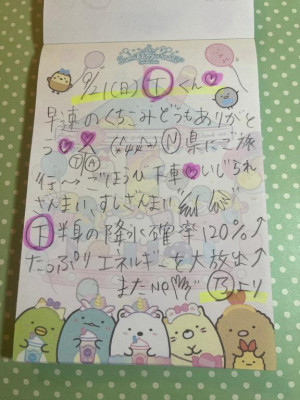 9/21(日) Ⓣくん♡
早速のくちこみどうもありがと
う♥♥ Ⓝ県にご旅
行〜 ごほうび下車♥いじられ
ざんまい、すしざんまい
Ⓣ半身の降水確率120%↑
たっぷりエネルギーを大放出↑
また Ⓑより